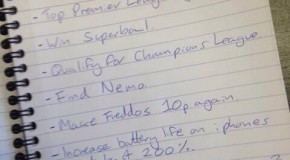 - Top Premier League
- Win Superbowl
- Qualify for Champions League
- Find Nemo
- Make Freddos 10p again
- Increase battery life on iphones
200%